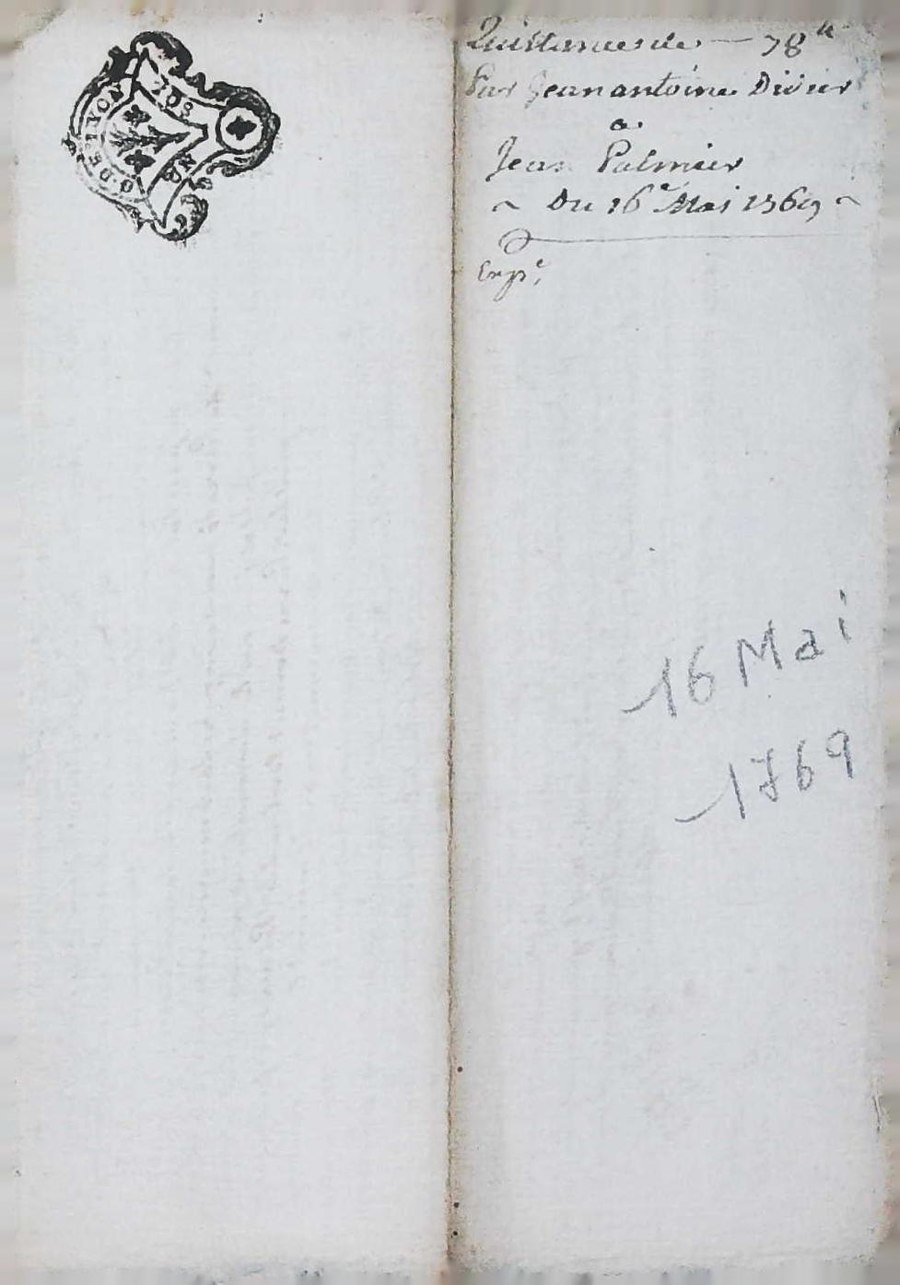 G. DE LYON
Quittance de — 78ᵗᵗ
Par Jean antoine Divier
a
Jean Palmier
~ Du 16ᵉ Mai 1769 ~
Expᵉ
16 Mai
1769